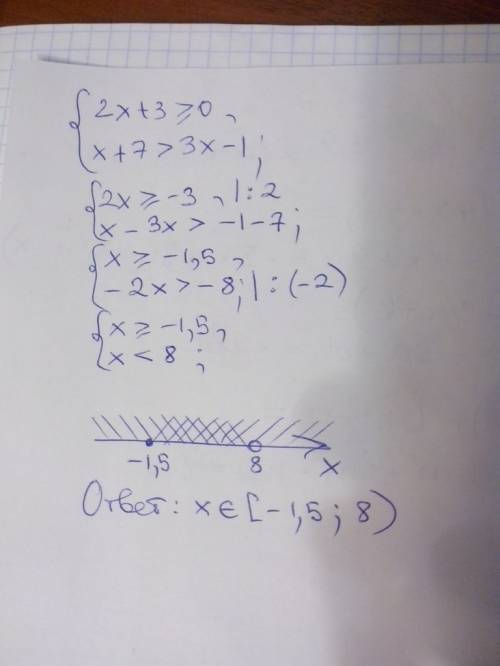 { 2x+3 ≥ 0 ,
x+7 > 3x-1 ;
{ 2x ≥ -3 , | : 2
x - 3x > -1 - 7 ;
{ x ≥ -1,5 ,
-2x > -8 ; | : (-2)
{ x ≥ -1,5 ,
x < 8 ;
-1,5 8 x
Ответ: x ∈ [-1,5 ; 8)